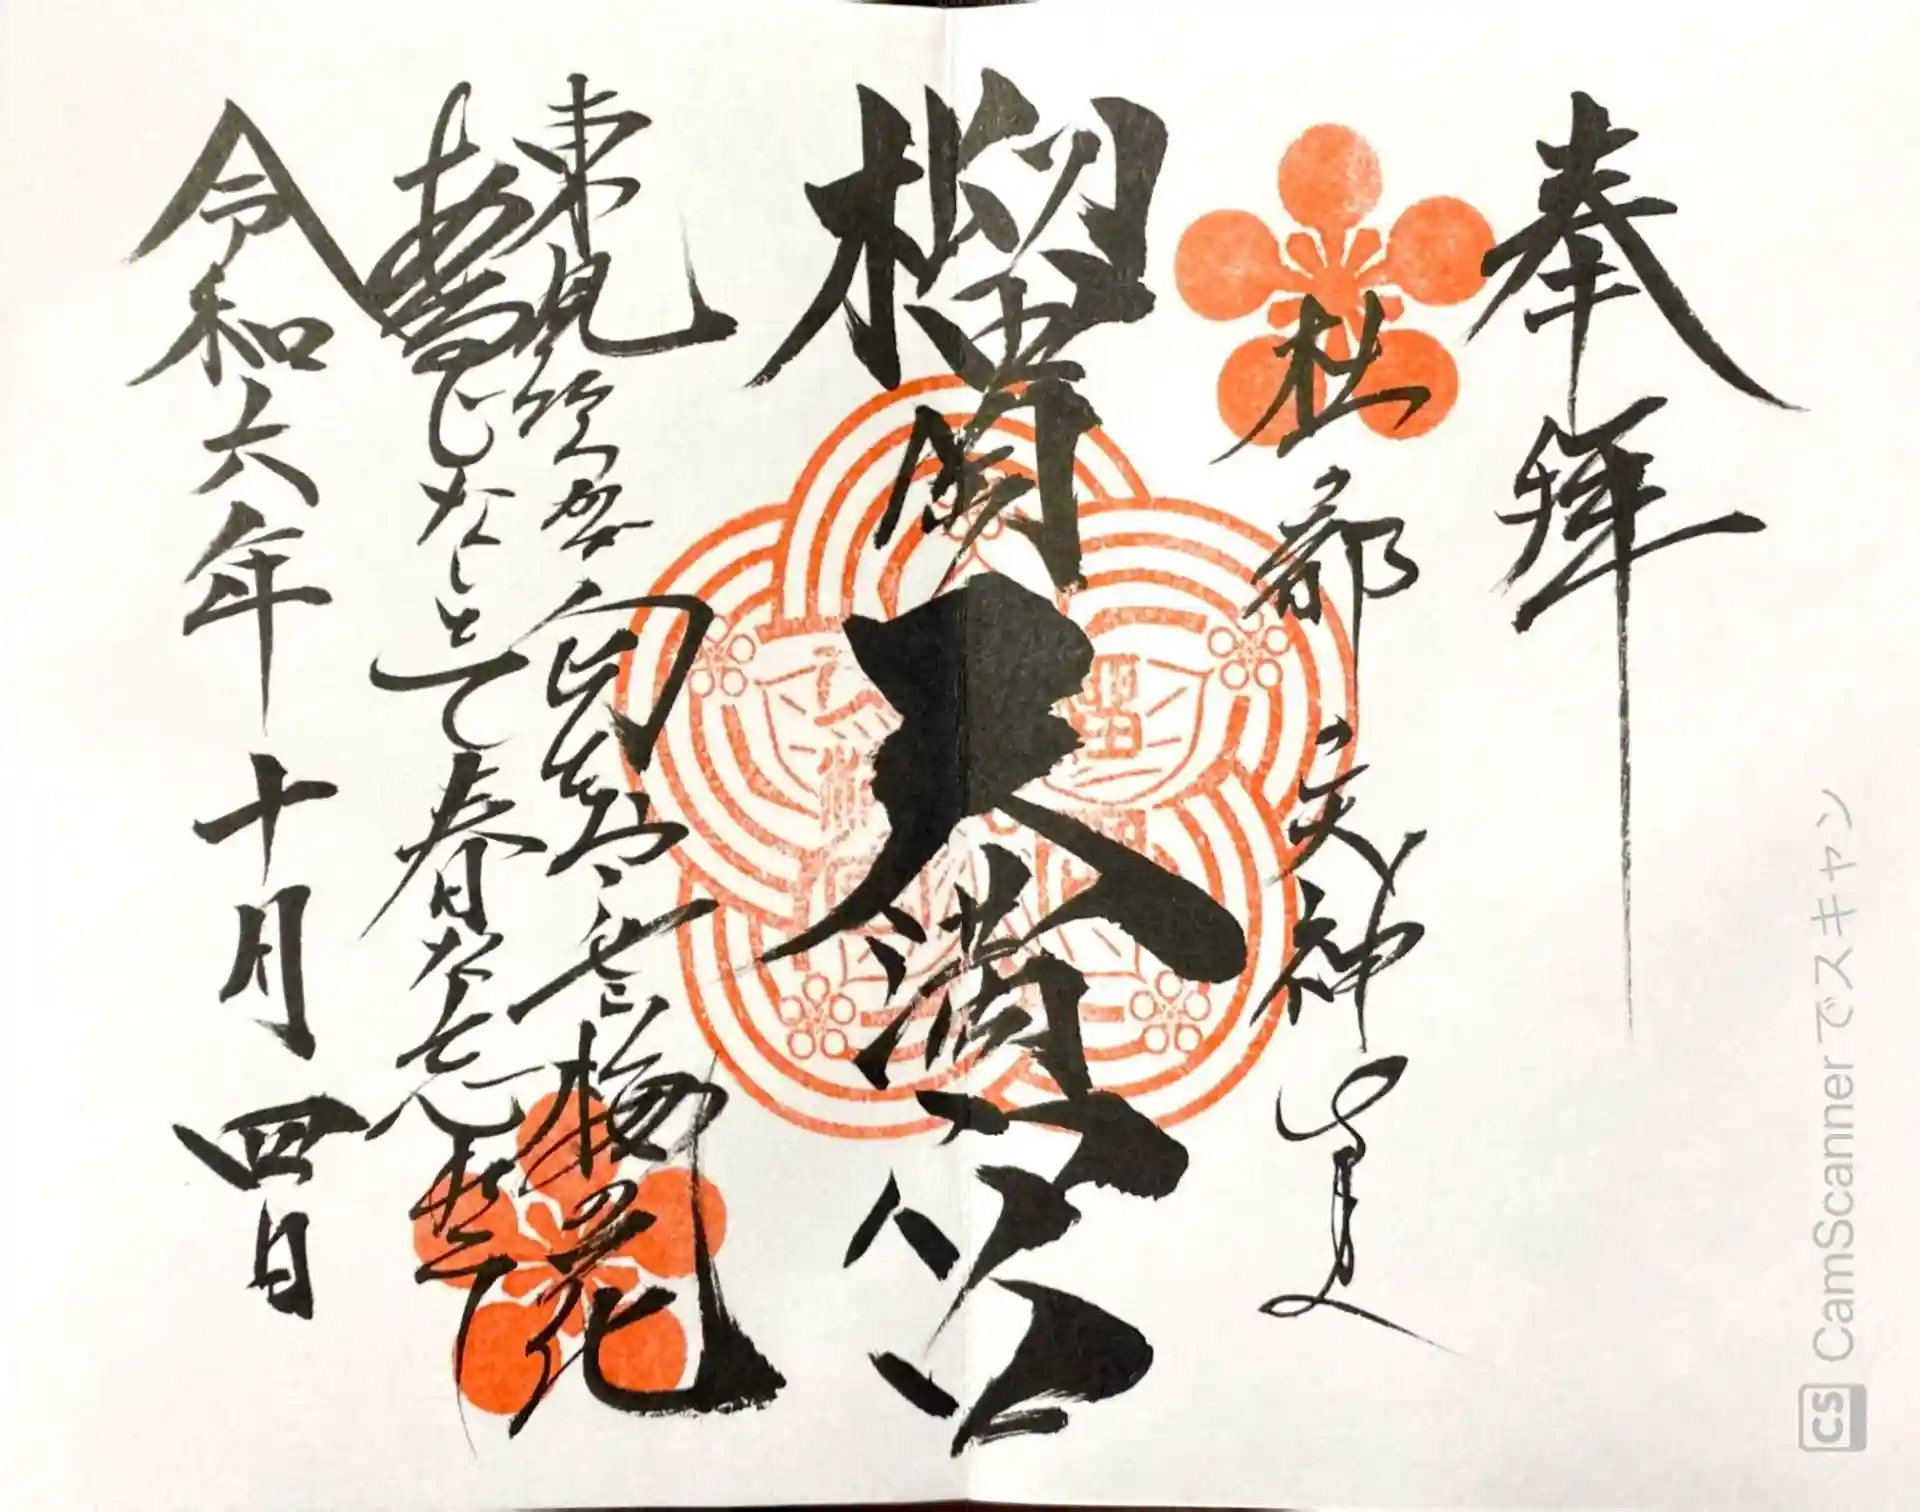 奉拝
杜都天神
榴岡天満宮
東風吹かば匂おこせよ梅の花
あるじなしとて春な忘れそ
令和六年十月四日
CS CamScannerでスキャン